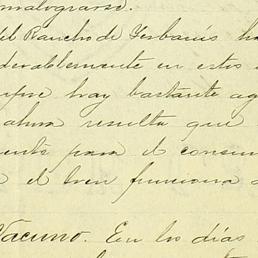 malograrse.
el Rancho de Yerbanís ha
derablemente en estos
hay bastante ag
ahora resulta que
ento para el consum
el bien funciona
Vacuno. En los días